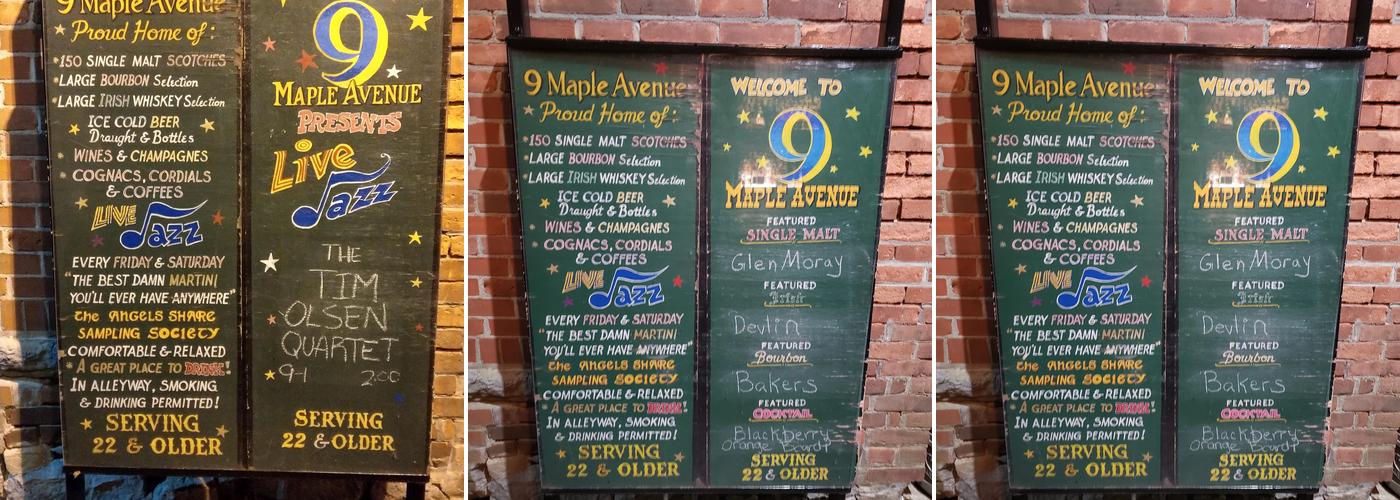 9 Maple Avenue
Proud Home of:
150 SINGLE MALT SCOTCHES
LARGE BOURBON Selection
LARGE IRISH WHISKEY Selection
ICE COLD BEER
Draught & Bottles
WINES & CHAMPAGNES
COGNACS, CORDIALS
& COFFEES
LIVE Jazz
EVERY FRIDAY & SATURDAY
"THE BEST DAMN MARTINI
YOU'LL EVER HAVE ANYWHERE"
the ANGELS SHARE
SAMPLING SOCIETY
COMFORTABLE & RELAXED
A GREAT PLACE TO DRINK!
IN ALLEYWAY, SMOKING
& DRINKING PERMITTED!
SERVING
22 & OLDER
9
MAPLE AVENUE
PRESENTS
Live
Jazz
THE
TIM
OLSEN
QUARTET
9-1 2:00
SERVING
22 & OLDER
9 Maple Avenue
Proud Home of:
150 SINGLE MALT SCOTCHES
LARGE BOURBON Selection
LARGE IRISH WHISKEY Selection
ICE COLD BEER
Draught & Bottles
WINES & CHAMPAGNES
COGNACS, CORDIALS
& COFFEES
LIVE Jazz
EVERY FRIDAY & SATURDAY
"THE BEST DAMN MARTINI
YOU'LL EVER HAVE ANYWHERE"
the ANGELS SHARE
SAMPLING SOCIETY
COMFORTABLE & RELAXED
A GREAT PLACE TO DRINK!
IN ALLEYWAY, SMOKING
& DRINKING PERMITTED!
SERVING
22 & OLDER
WELCOME TO
9
MAPLE AVENUE
FEATURED
SINGLE MALT
Glen Moray
FEATURED
Irish
Devlin
FEATURED
Bourbon
Bakers
FEATURED
COCKTAIL
Blackberry
Orange
SERVING
22 & OLDER
9 Maple Avenue
Proud Home of:
150 SINGLE MALT SCOTCHES
LARGE BOURBON Selection
LARGE IRISH WHISKEY Selection
ICE COLD BEER
Draught & Bottles
WINES & CHAMPAGNES
COGNACS, CORDIALS
& COFFEES
LIVE Jazz
EVERY FRIDAY & SATURDAY
"THE BEST DAMN MARTINI
YOU'LL EVER HAVE ANYWHERE"
the ANGELS SHARE
SAMPLING SOCIETY
COMFORTABLE & RELAXED
A GREAT PLACE TO DRINK!
IN ALLEYWAY, SMOKING
& DRINKING PERMITTED!
SERVING
22 & OLDER
WELCOME TO
9
MAPLE AVENUE
FEATURED
SINGLE MALT
Glen Moray
FEATURED
Irish
Devlin
FEATURED
Bourbon
Bakers
FEATURED
COCKTAIL
Blackberry
Orange
SERVING
22 & OLDER